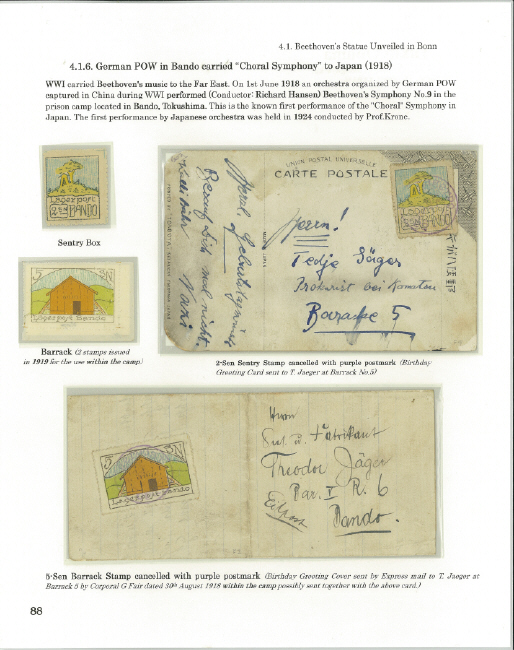 4.1. Beethoven's Statue Unveiled in Bonn
4.1.6. German POW in Bando carried "Choral Symphony" to Japan (1918)
WWI carried Beethoven's music to the Far East. On 1st June 1918 an orchestra organized by German POW
captured in China during WWI performed (Conductor: Richard Hansen) Beethoven's Symphony No.9 in the
prison camp located in Bando, Tokushima. This is the known first performance of the "Choral" Symphony in
Japan. The first performance by Japanese orchestra was held in 1924 conducted by Prof.Krone.
Lagerpost
2 Sen BANDO
Sentry Box
5 SN
Lagerpost Bando
Barrack (2 stamps issued
in 1919 for the use within the camp)
UNION POSTAL UNIVERSELLE
CARTE POSTALE
Lagerpost
BANDO
Herrn!
Tedje Jäger
Prokurist bei
Baracke 5
Herzl.
nicht.
2-Sen Sentry Stamp cancelled with purple postmark (Birthday
Greeting Card sent to T. Jaeger at Barrack No.5)
5 SN
Lagerpost Bando
Herrn
Fabrikant
Theodor Jäger
Bar. I R. 6
Eilpost
Bando.
5-Sen Barrack Stamp cancelled with purple postmark (Birthday Greeting Cover sent by Express mail to T. Jaeger at
Barrack 5 by Corporal G Fair dated 30th August 1918 within the camp possibly sent together with the above card.)
88